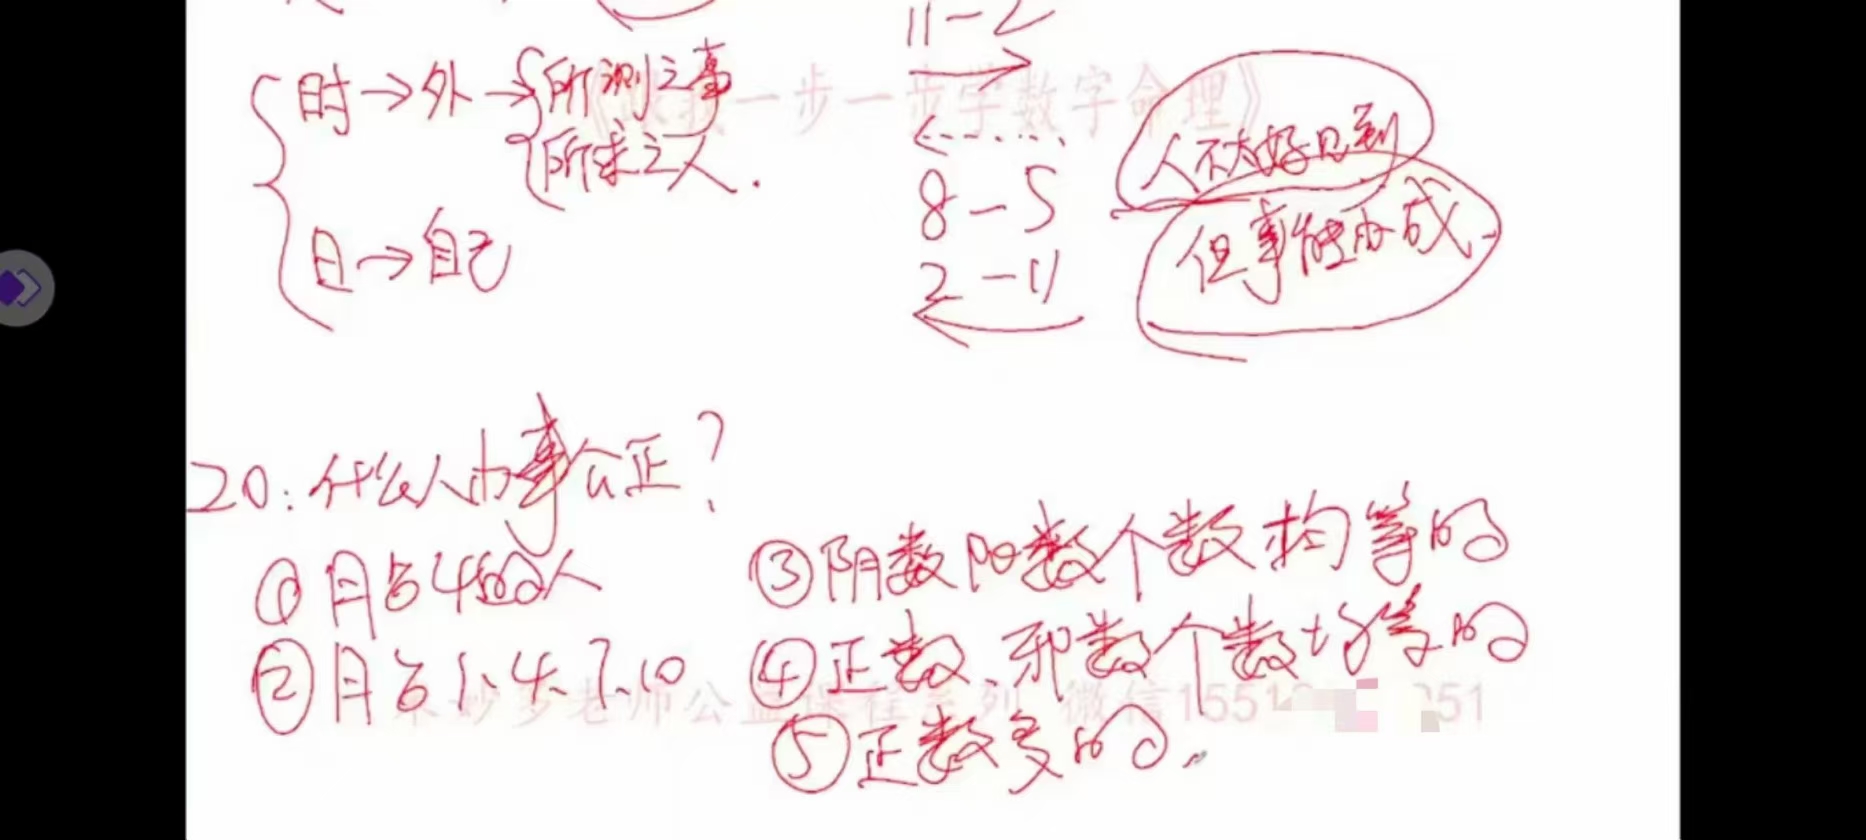 11-2
时→外→所测之事
所求之人.
日→自己
8-5
2-11
人不太好见到
但事能办成.
《跟我一步一步学数字命理》
20:什么人办事公正?
①月占4的人
②月占1.4.7.10
③阴数阳数个数均等的
④正数、邪数个数均等的
⑤正数多的.
老师公益课程系列 微信155
51